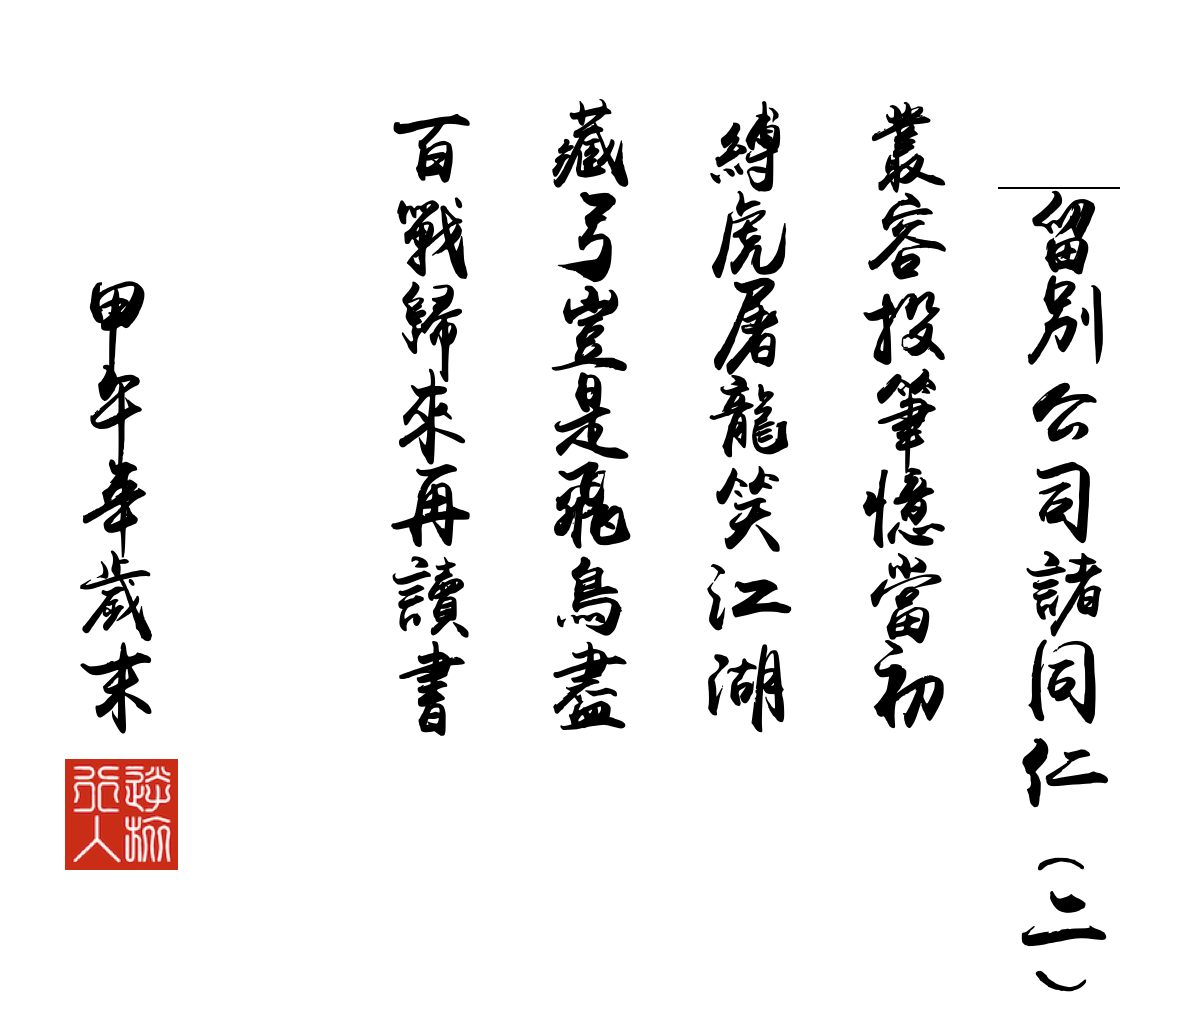 留別公司諸同仁（二）
叢容投筆憶當初
縛虎屠龍笑江湖
藏弓豈是飛鳥盡
百戰歸來再讀書
甲午華歲末